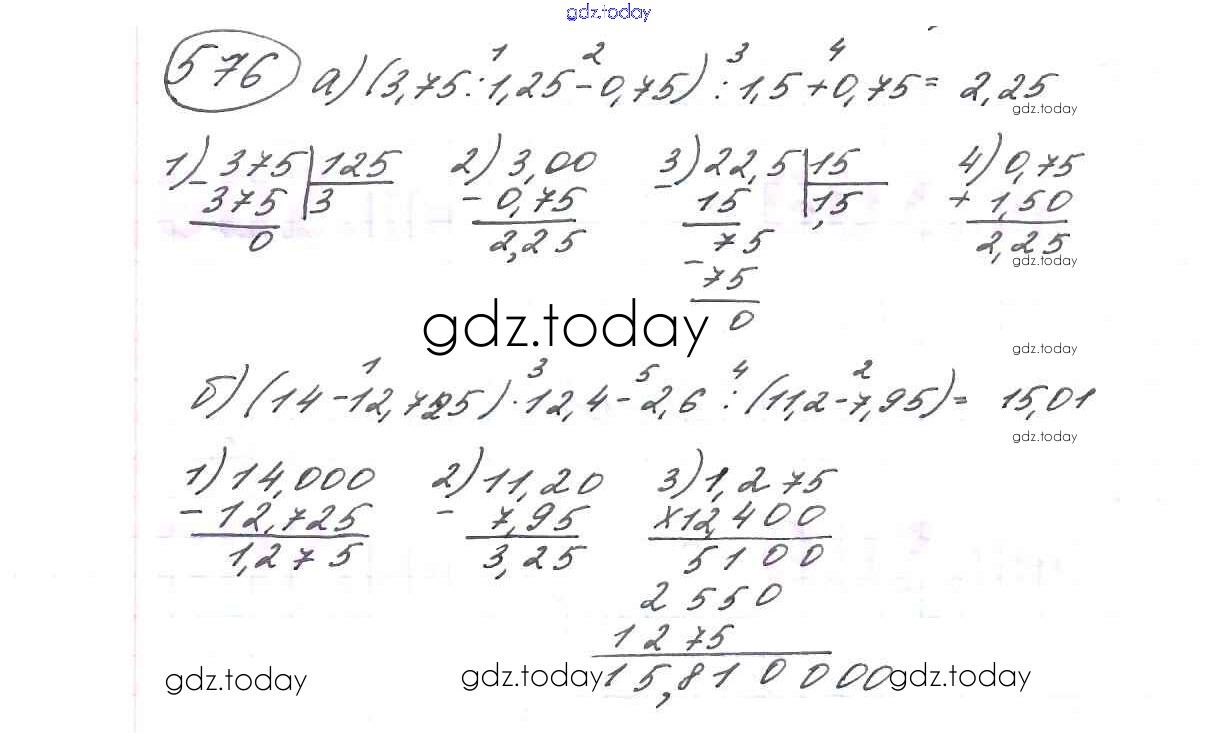 gdz.today
1 2 3 4
576 а) (3,75:1,25-0,75):1,5+0,75= 2,25
gdz.today
1) 375 125 2) 3,00 3) 22,5 15 4) 0,75
- 375 3 - 0,75 - 15 1,5 + 1,50
0 2,25 75 2,25
gdz.today
- 75
0
gdz.today
gdz.today
1 3 5 4 2
б) (14-12,725)·12,4-2,6:(11,2-7,95)= 15,01
gdz.today
1) 14,000 2) 11,20 3) 1,275
- 12,725 - 7,95 x12,400
1,275 3,25 5100
2550
1275
15,810000
gdz.today gdz.today gdz.today